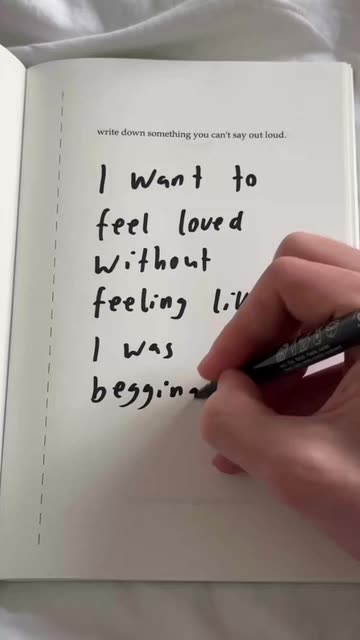 write down something you can't say out loud.
I want to
feel loved
without
feeling
I was